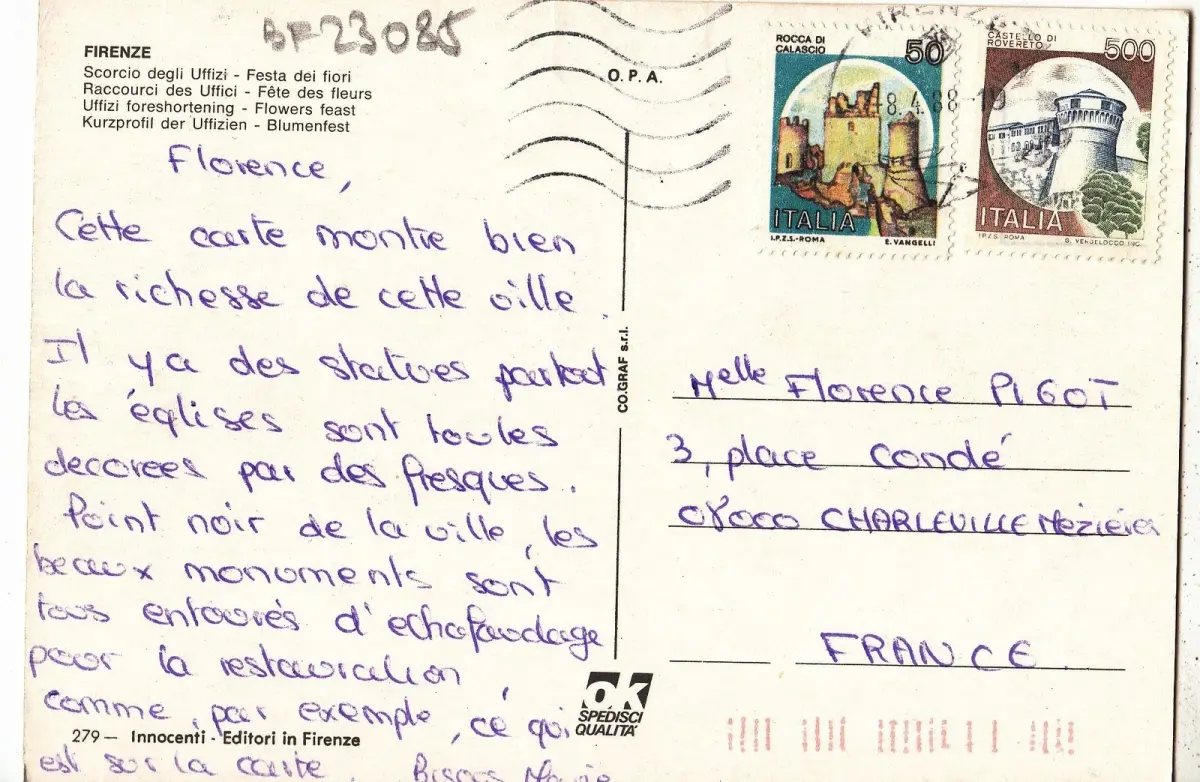 BF23085
FIRENZE
Scorcio degli Uffizi - Festa dei fiori
Raccourci des Uffici - Fête des fleurs
Uffizi foreshortening - Flowers feast
Kurzprofil der Uffizien - Blumenfest
Florence,
Cette carte montre bien
la richesse de cette ville.
Il y a des statues partout
les églises sont toutes
decorees par des fresques.
Point noir de la ville, les
beaux monuments sont
tous entourés d'echafaudage
pour la restauration,
comme, par exemple, ce qui
est sur la carte. Bisous Marie
279 — Innocenti - Editori in Firenze
O. P. A.
CO.GRAF s.r.l.
OK
SPEDISCI
QUALITA'
ROCCA DI
CALASCIO
50
ITALIA
I.P.Z.S.-ROMA E. VANGELLI
CASTELLO DI
ROVERETO
500
ITALIA
I.P.Z.S. ROMA
FIRENZE
8.4.88-19
Melle Florence PIGOT
3, place Condé
08000 CHARLEVILLE Mézières
FRANCE.